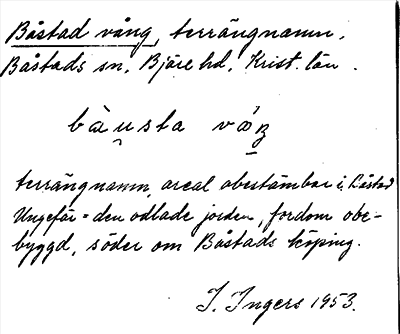 Båstad vång, terrängnamn,
Båstads sn, Bjäre hd, Krist. län.
bàu̯sta vǻŋ
terrängnamn, areal obestämbar i Båstad
Ungefär = den odlade jorden, fordom obe-
byggd, söder om Båstads köping.
I. Ingers 1953.